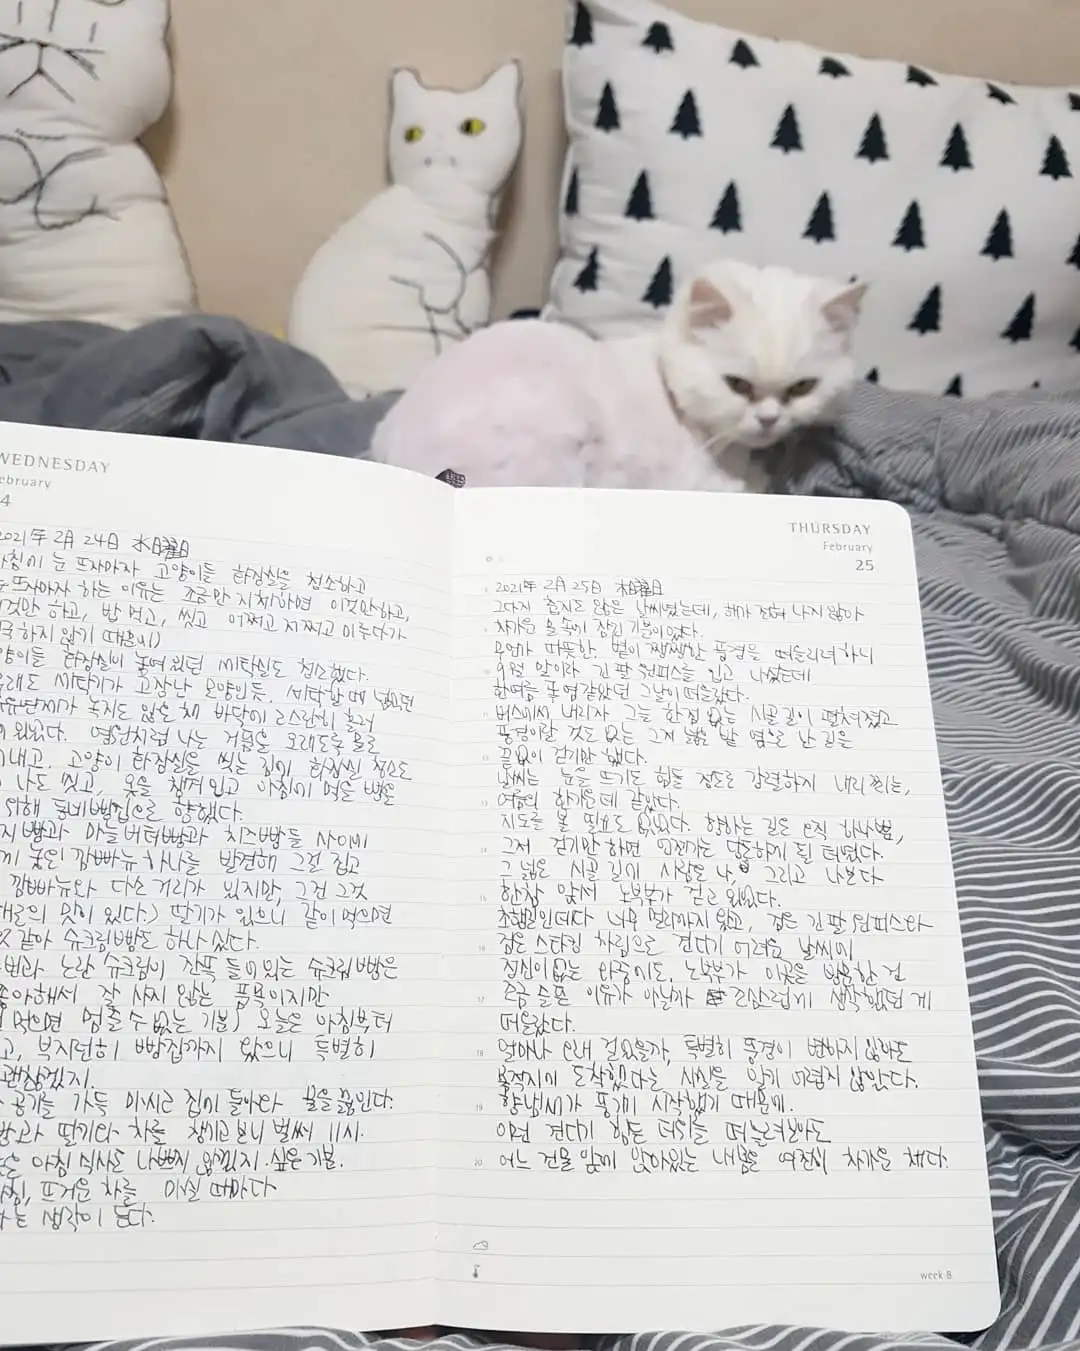 WEDNESDAY
ebruary
4
2021年 2月 24日 水曜日
아침에 눈 뜨자마자 고양이들 화장실을 청소하고
눈 뜨자마자 하는 이유는 조금만 지체하면 이것만하고,
이것만 하고, 밥 먹고, 씻고 어쩌고 저쩌고 미루다가
하지 않기 때문에)
고양이들 화장실이 놓여 있던 세탁실도 청소했다.
세탁기가 고장난 모양인듯. 세탁할 때 넣었던
녹지도 않은 채 바닥에 흘러
있었다. 영원처럼 나는 거품을 오래도록 물로
고양이 화장실을 씻는 김에 화장실 청소도
나도 씻고, 옷을 챙겨 입고 아침에 먹을 빵을
위해 동네 빵집으로 향했다.
마늘 버터빵과 치즈빵들 사이에
놓인 깜빠뉴 하나를 발견해 그걸 집고
깜빠뉴와 다소 거리가 있지만, 그건 그것
대로의 맛이 있다.) 딸기가 있으니 같이 먹으면
것 같아 슈크림빵도 하나 샀다.
노란 슈크림이 잔뜩 들어있는 슈크림빵은
좋아해서 잘 사지 않는 품목이지만
먹으면 멈출 수 없는 기분) 오늘은 아침부터
고, 부지런히 빵집까지 왔으니 특별히
괜찮겠지.
공기를 가득 마시고 집에 돌아와 물을 끓인다.
빵과 딸기와 차를 챙기고 보니 벌써 11시.
늦은 아침 식사도 나쁘지 않겠지. 싶은 기분.
아침, 뜨거운 차를 마실 때마다
하는 생각이 든다.
THURSDAY
February
25
2021年 2月 25日 木曜日
그다지 춥지도 않은 날씨였는데, 해가 전혀 나지 않아
차가운 물 속에 잠긴 기분이었다.
무언가 따뜻한, 볕이 쨍쨍한 풍경을 떠올리려 하니
9월 말이라 긴 팔 원피스를 입고 나섰는데
한여름 폭염같았던 그날이 떠올랐다.
버스에서 내리자 그늘 한 점 없는 시골 길이 펼쳐졌고
풍경이랄 것도 없는 그저 넓은 밭 옆으로 난 길을
끝없이 걷기만 했다.
날씨는 눈을 뜨기도 힘들 정도로 강렬하게 내리쬐는,
여름의 한가운데 같았다.
지도를 볼 필요도 없었다. 향하는 길은 오직 하나뿐,
그저 걷기만 하면 언젠가는 당도하게 될 터였다.
그 넓은 시골 길에 사람은 나, 그리고 나보다
한참 앞서 노부부가 걷고 있었다.
초행길인데다 너무 멀리까지 왔고, 검은 긴 팔 원피스와
검은 스타킹 차림으로 견디기 어려운 날씨에
정신이 없는 와중에도, 노부부가 이곳을 방문한 건
조금 슬픈 이유가 아닐까 조심스럽게 생각했던 게
떠올랐다.
얼마나 오래 걸었을까, 특별히 풍경이 변하지 않아도
목적지에 도착했다는 사실을 알기 어렵지 않았다.
향냄새가 풍기기 시작했기 때문에.
이런 견디기 힘든 더위를 떠올려보아도
어느 건물 앞에 앉아있는 내 몸은 여전히 차가운 채다.
week 8